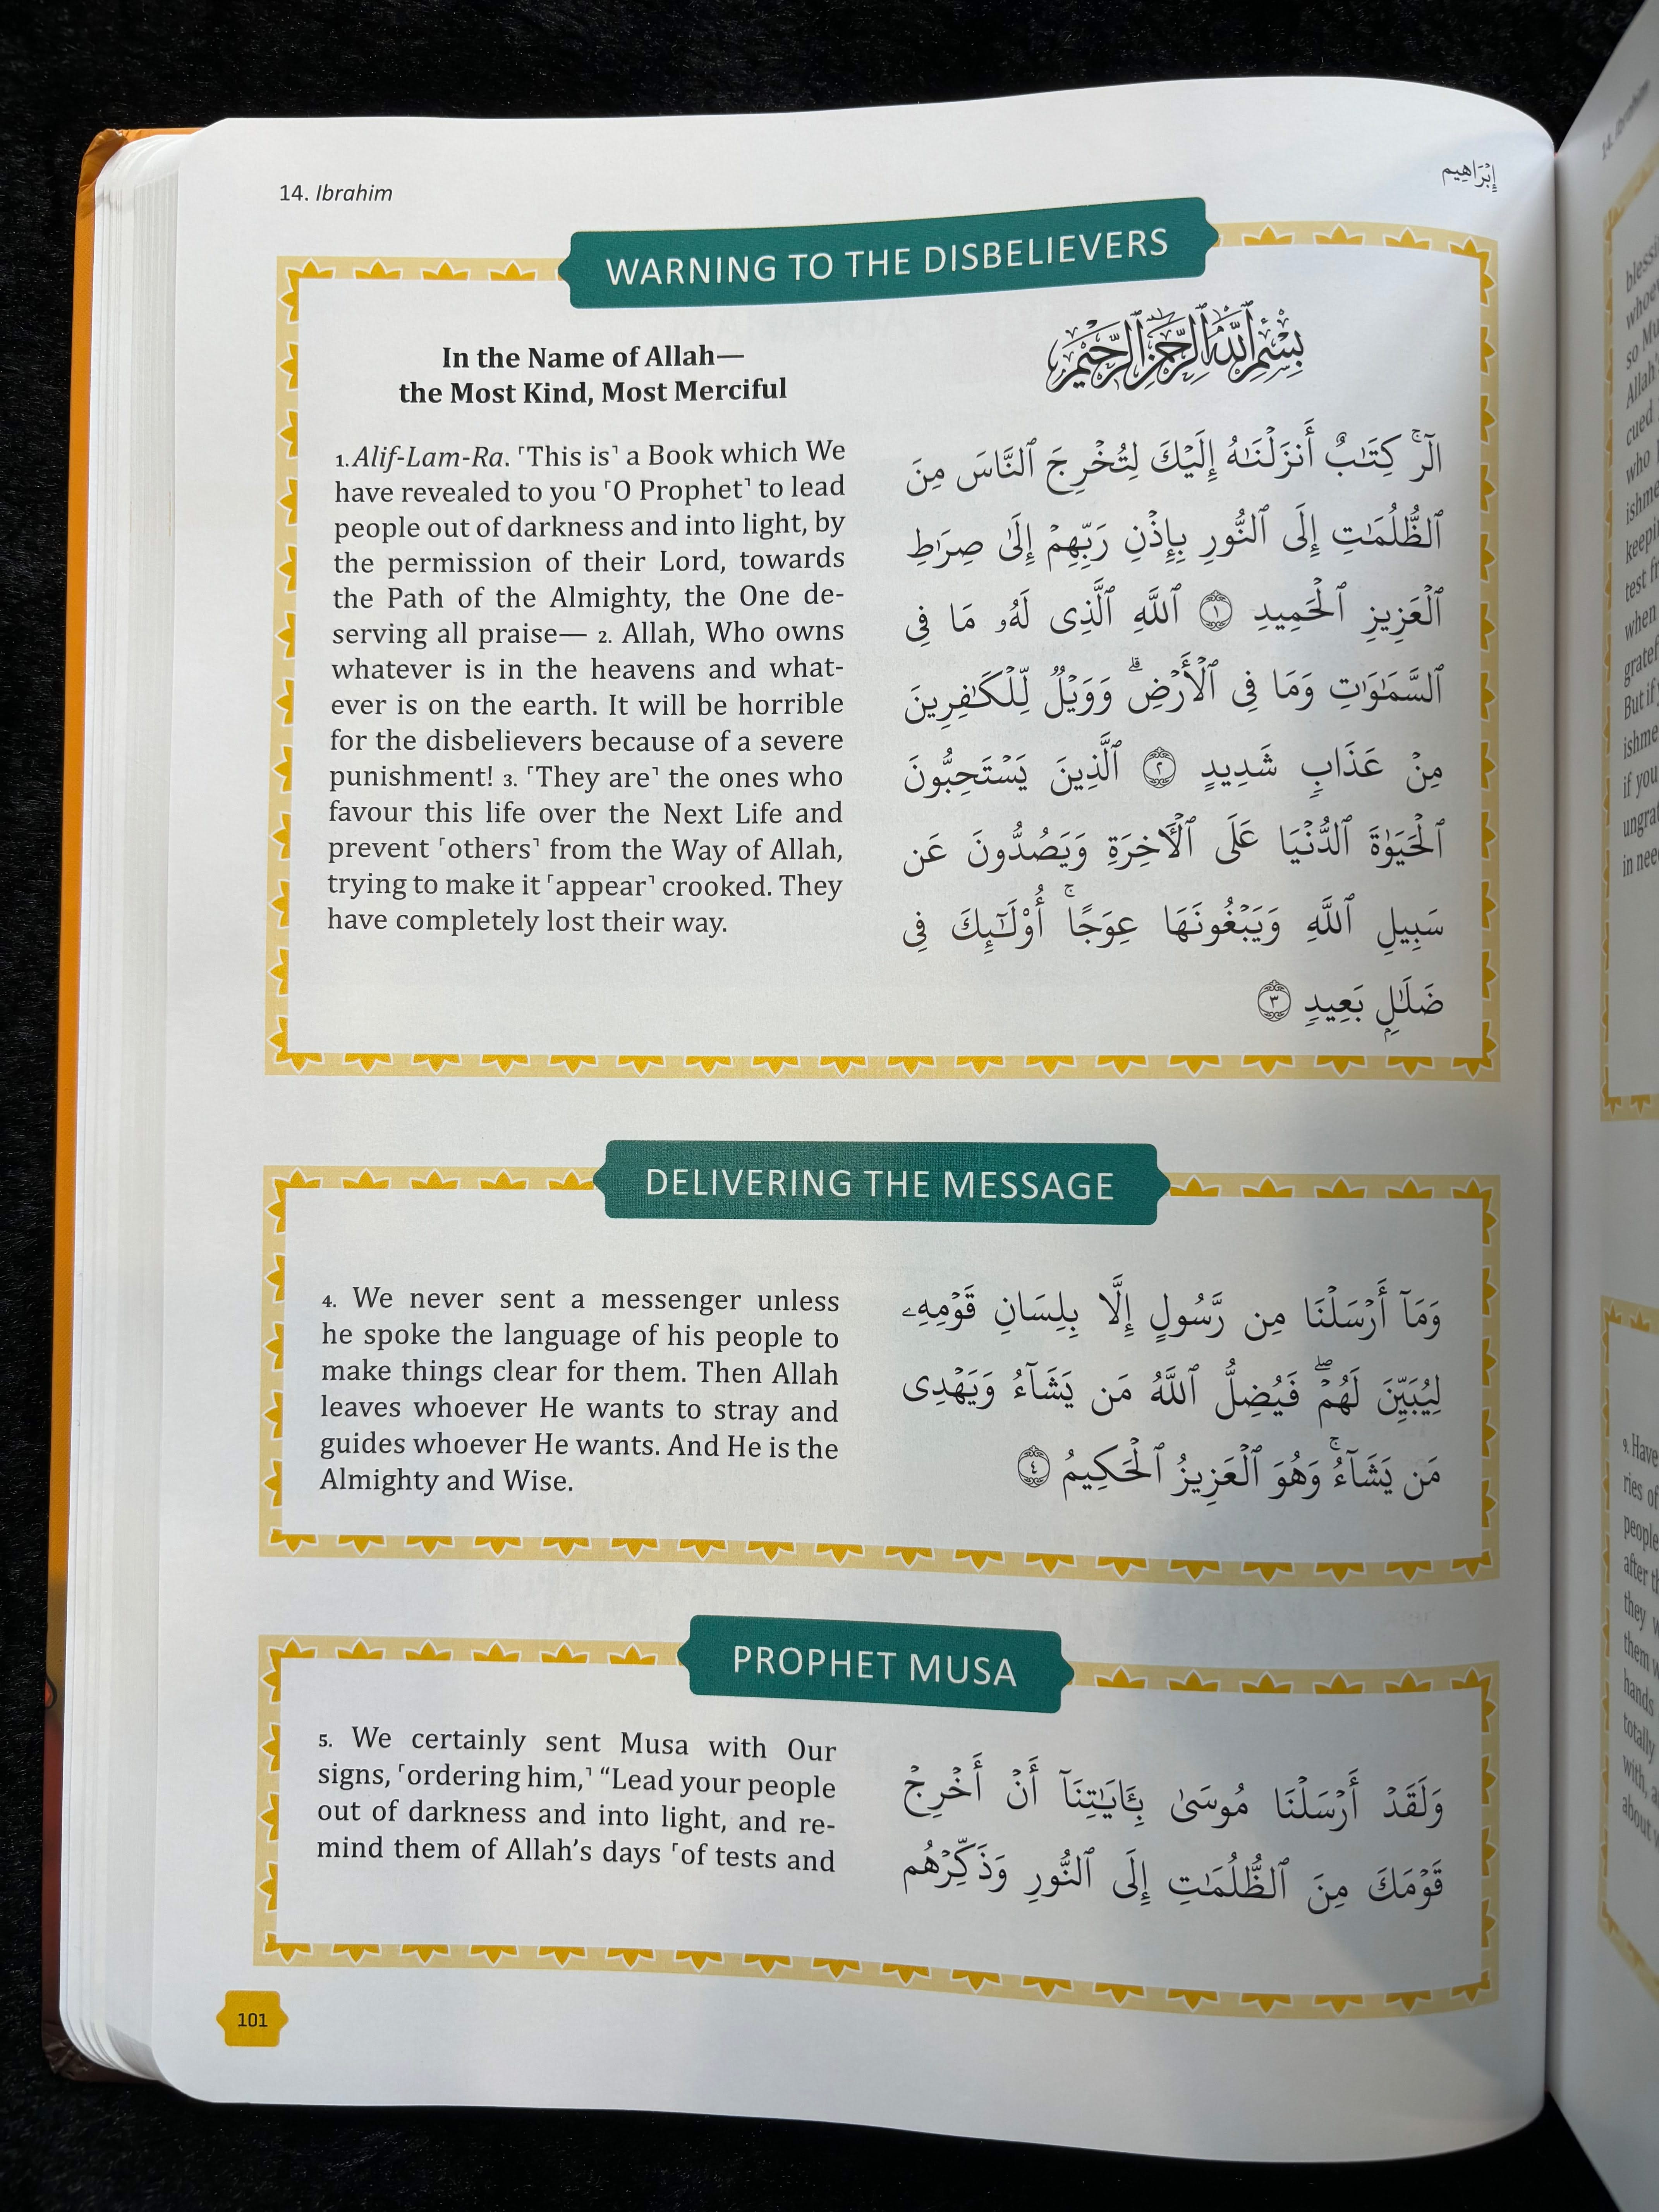 14. Ibrahim
إِبْرَاهِيم
WARNING TO THE DISBELIEVERS
In the Name of Allah—
the Most Kind, Most Merciful
1. Alif-Lam-Ra. ⸢This is⸣ a Book which We
have revealed to you ⸢O Prophet⸣ to lead
people out of darkness and into light, by
the permission of their Lord, towards
the Path of the Almighty, the One de-
serving all praise— 2. Allah, Who owns
whatever is in the heavens and what-
ever is on the earth. It will be horrible
for the disbelievers because of a severe
punishment! 3. ⸢They are⸣ the ones who
favour this life over the Next Life and
prevent ⸢others⸣ from the Way of Allah,
trying to make it ⸢appear⸣ crooked. They
have completely lost their way.
بِسْمِ ٱللَّهِ ٱلرَّحْمَٰنِ ٱلرَّحِيمِ
الٓر ۚ كِتَـٰبٌ أَنزَلْنَـٰهُ إِلَيْكَ لِتُخْرِجَ ٱلنَّاسَ مِنَ
ٱلظُّلُمَـٰتِ إِلَى ٱلنُّورِ بِإِذْنِ رَبِّهِمْ إِلَىٰ صِرَٰطِ
ٱلْعَزِيزِ ٱلْحَمِيدِ ١ ٱللَّهِ ٱلَّذِى لَهُۥ مَا فِى
ٱلسَّمَـٰوَٰتِ وَمَا فِى ٱلْأَرْضِ ۗ وَوَيْلٌ لِّلْكَـٰفِرِينَ
مِنْ عَذَابٍ شَدِيدٍ ٢ ٱلَّذِينَ يَسْتَحِبُّونَ
ٱلْحَيَوٰةَ ٱلدُّنْيَا عَلَى ٱلْـَٔاخِرَةِ وَيَصُدُّونَ عَن
سَبِيلِ ٱللَّهِ وَيَبْغُونَهَا عِوَجًا ۚ أُو۟لَـٰٓئِكَ فِى
ضَلَـٰلٍۭ بَعِيدٍ ٣
DELIVERING THE MESSAGE
4. We never sent a messenger unless
he spoke the language of his people to
make things clear for them. Then Allah
leaves whoever He wants to stray and
guides whoever He wants. And He is the
Almighty and Wise.
وَمَآ أَرْسَلْنَا مِن رَّسُولٍ إِلَّا بِلِسَانِ قَوْمِهِۦ
لِيُبَيِّنَ لَهُمْ ۖ فَيُضِلُّ ٱللَّهُ مَن يَشَآءُ وَيَهْدِى
مَن يَشَآءُ ۚ وَهُوَ ٱلْعَزِيزُ ٱلْحَكِيمُ ٤
PROPHET MUSA
5. We certainly sent Musa with Our
signs, ⸢ordering him,⸣ “Lead your people
out of darkness and into light, and re-
mind them of Allah’s days ⸢of tests and
وَلَقَدْ أَرْسَلْنَا مُوسَىٰ بِـَٔايَـٰتِنَآ أَنْ أَخْرِجْ
قَوْمَكَ مِنَ ٱلظُّلُمَـٰتِ إِلَى ٱلنُّورِ وَذَكِّرْهُم
101
14. Ibrahim
whoe
so Mu
Allah'
cued
who
ishme
keepi
test f
when
gratef
But if
ishme
if you
ungra
in nee
9. Have
ries of
people
after th
they w
them w
hands
totally
with, a
about w